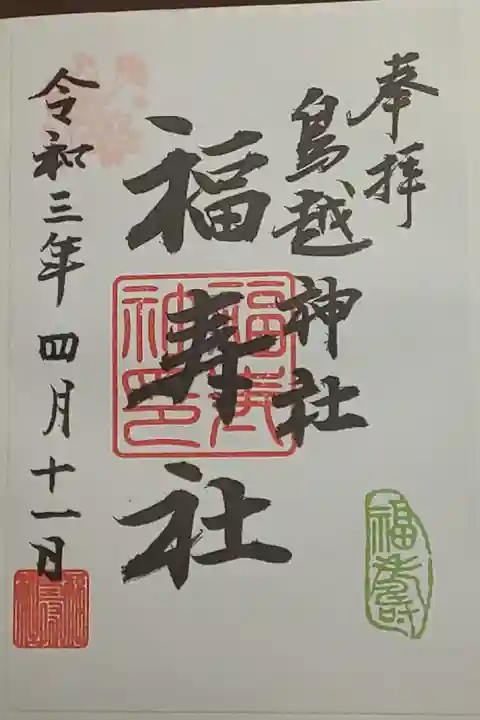 奉拝
鳥越神社
福寿社
令和三年四月十一日
福寿